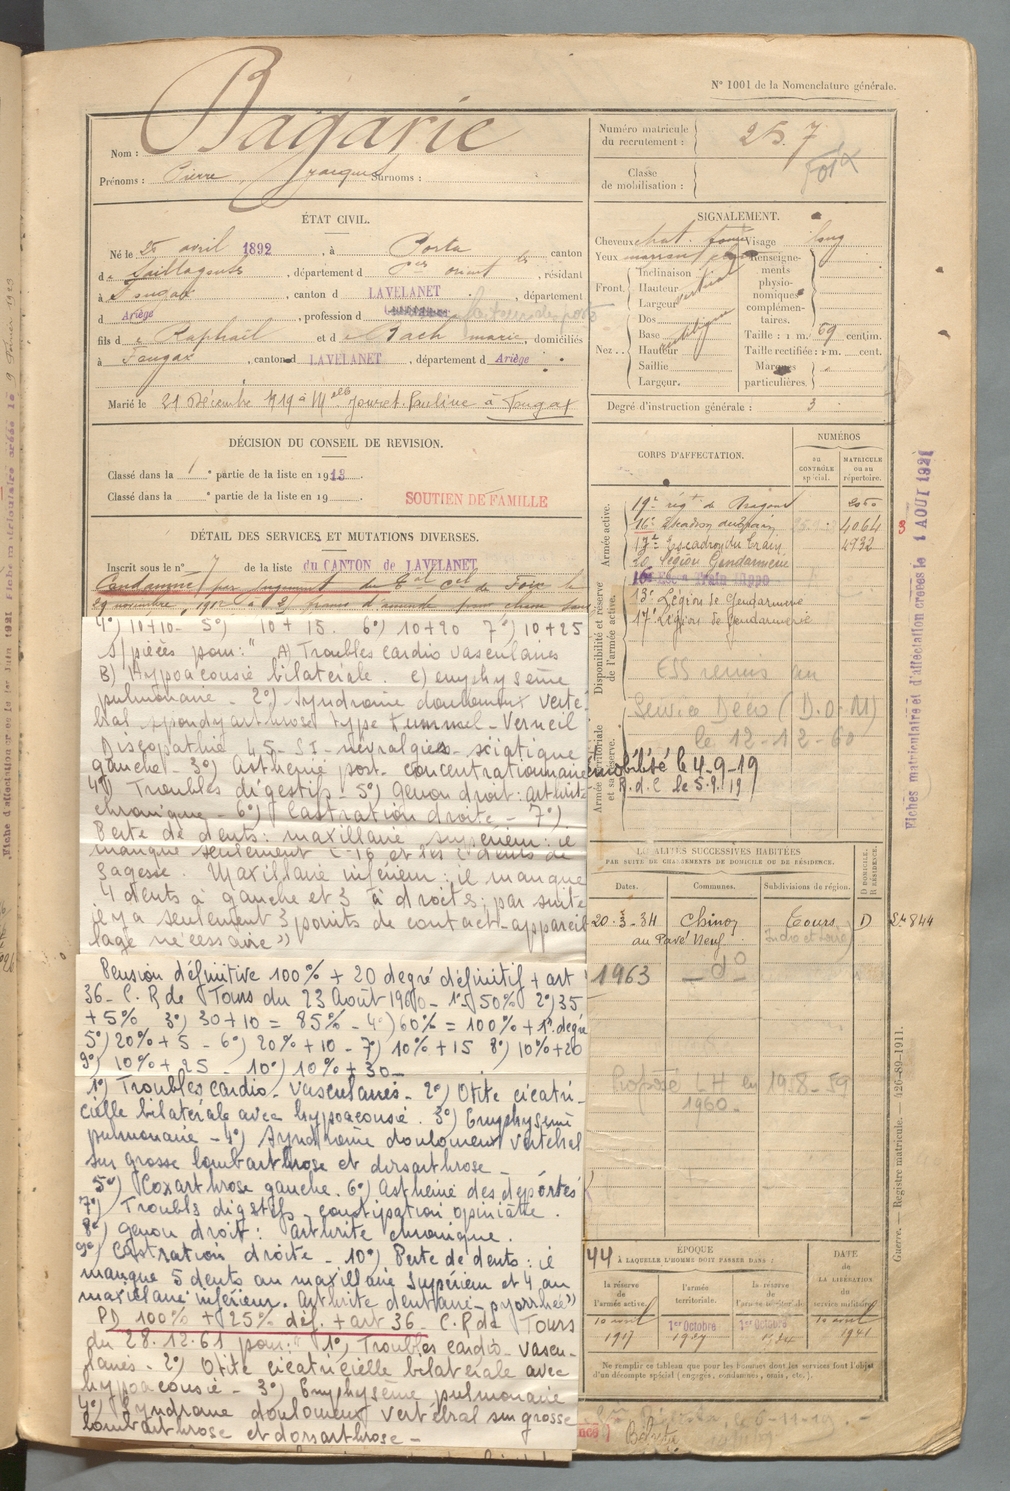 N° 1001 de la Nomenclature générale.
Bagarie
Nom :
Prénoms : Pierre Jacques Surnoms :
Numéro matricule du recrutement : 257
Foix
Classe de mobilisation :
ÉTAT CIVIL.
Né le 25 avril 1892, à Porta canton
de Saillagouse, département des Pées orient, résidant
à Fougax, canton d LAVELANET, département
d Ariège, profession d
fils de Raphaël et de Bach marie, domiciliés
à Fougax, canton d LAVELANET, département d Ariège
Marié le 21 Décembre 1919 à Mlle Jouret Pauline à Fougax
SIGNALEMENT.
Cheveux chat. foncé Visage long
Yeux marron
Front. Inclinaison vertical
Hauteur
Largeur
Nez. Dos
Base
Hauteur
Saillie
Largeur.
Renseignements physionomiques complémentaires.
Taille : 1 m. 69 centim.
Taille rectifiée : 1 m. cent.
Marques particulières.
Degré d'instruction générale : 3
DÉCISION DU CONSEIL DE REVISION.
Classé dans la 1e partie de la liste en 1913
Classé dans la e partie de la liste en 19
SOUTIEN DE FAMILLE
DÉTAIL DES SERVICES ET MUTATIONS DIVERSES.
Inscrit sous le n° 7 de la liste du CANTON de LAVELANET
Condamné par jugement du Tal Cel de Foix le
29 novembre 1912 à 25 francs d'amende pour chasse sans
4°) 10+10- 5°) 10+15. 6°) 10+20 7°) 10+25
s/pièces pour: "A) Troubles cardio vasculaires
B) Hypoacousie bilatérale. c) emphysème
pulmonaire - 2°) Syndrome douloureux verté-
bral, spondylarthrose type Kummel - Verneil
Discopathie 45-S1-névralgies sciatique
gauche - 3°) asthénie post-concentrationnaire
4°) Troubles digestifs - 5°) Genou droit: arthrite
chronique - 6°) Castration droite - 7°)
Perte de dents: maxillaire supérieur: il
manque seulement
sagesse. Maxillaire inférieur: il manque
4 dents à gauche et 3 à droite; par suite
il y a seulement 3 points de contact-appareil
lage nécessaire")
Pension définitive 100% + 20 degré définitif + art
36 - C.R de Tours du 23 Août 1960 - 1°) 50% 2°) 35
+5% 3°) 30+10 = 85% - 4°) 60% = 100% + 1er degré
5°) 20%+5 - 6°) 20%+10 - 7°) 10%+15 8°) 10%+20
9°) 10%+25 - 10°) 10%+30-
1°) Troubles cardio-vasculaires - 2°) Otite cicatri-
cielle bilatérale avec hypoacousie. 3°) Emphysème
pulmonaire - 4°) Syndrome douloureux vertébral
sur grosse lombarthrose et dorsarthrose -
5°) Coxarthrose gauche. 6°) Asthénie des déportés
7°) Troubles digestifs, constipation opiniâtre.
8°) genou droit: arthrite chronique.
9°) Castration droite - 10°) Perte de dents: il
manque 5 dents au maxillaire supérieur et 4 au
maxillaire inférieur. Arthrite dentaire-pyorrhée")
PD 100% + 25% déf. + art 36 - C.R de Tours
du 28.12.61 pour: "1°) Troubles cardio-vascu-
laires - 2°) Otite cicatricielle bilatérale avec
hypoacousie - 3°) Emphysème pulmonaire
4°) Syndrome douloureux vertébral sur grosse
lombarthrose et dorsarthrose -
CORPS D'AFFECTATION.
NUMÉROS
AU CONTRÔLE spécial.
MATRICULE ou au répertoire.
Armée active.
19e régt de Dragons
16e Escadron du Train 4064
17e Escadron du Train 4732
20 Légion Gendarmerie
13e Légion de Gendarmerie
17e Légion de Gendarmerie
Disponibilité et réserve de l'armée active.
ESS remis au
Service Déco (D.O.M)
le 12-12-60
Armée territoriale et sa réserve.
mobilisé le 4-9-19
R.d.C le 5.9.19
LOCALITÉS SUCCESSIVES HABITÉES
PAR SUITE DE CHANGEMENTS DE DOMICILE OU DE RÉSIDENCE.
Dates. Communes. Subdivisions de région. D DOMICILE. R RÉSIDENCE.
20-3-34 Chinon Tours D Sn 844
au Pavé Neuf (Indre et Loire)
1963 - do -
Proposé LH en 1958-59
1960-
44
ÉPOQUE
À LAQUELLE L'HOMME DOIT PASSER DANS :
DATE DE LA LIBÉRATION du service militaire.
la réserve de l'armée active.
l'armée territoriale.
la réserve de l'armée territoriale
10 avril 1917
1er Octobre 1927
1er Octobre
10 avril 1941
Ne remplir ce tableau que pour les hommes dont les services font l'objet
d'un décompte spécial (engagés, condamnés, omis, etc.).
Fiches matriculaire et d'affectation créées le 1 AOUT 1921
Guerre. — Registre matricule. — 426-89-1911.